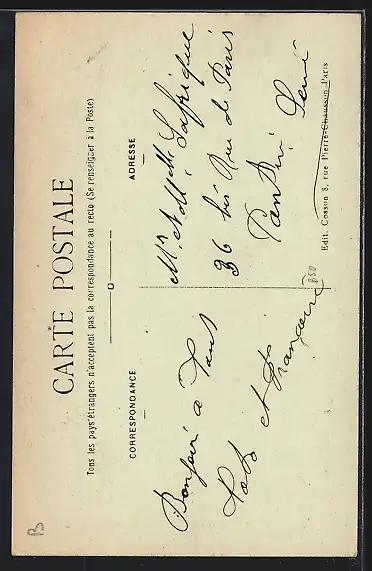 CARTE POSTALE
Tous les pays étrangers n'acceptent pas la correspondance au recto (Se renseigner à la Poste)
CORRESPONDANCE
ADRESSE
Bonjour a Tous
et Françoise
Mr et Mlle Laffrique
36 bis Rue de Paris
Pantin Seine
Edit. Cosson 8, rue Pierre-Chausson Paris
B50
B